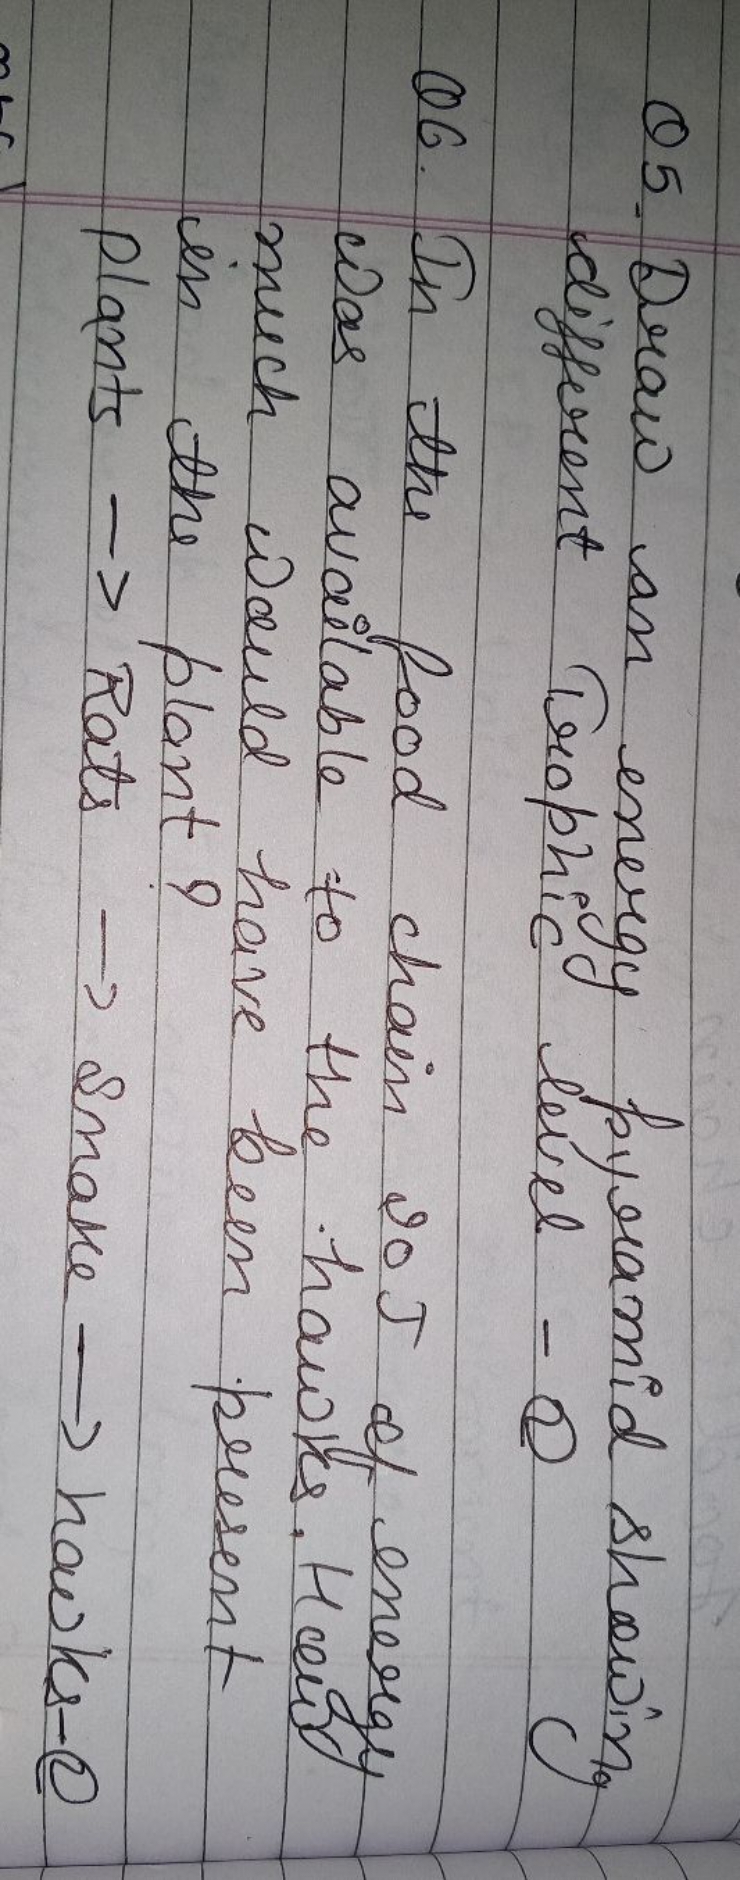 Q5. Draw an energy pyramid showing
different Trophic level - Q
Q6. In the food chain 20 J of energy
was available to the hawks. How
much would have been present
in the plant?
plants → Rats → Snake → hawks-Q